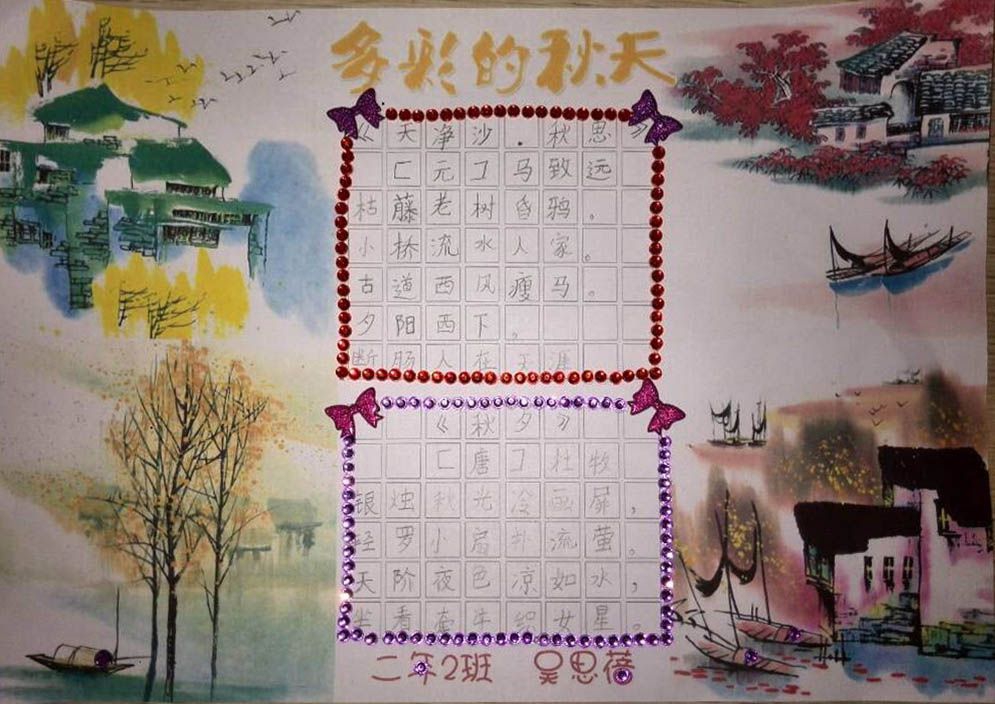 多彩的秋天
《天净沙.秋思》
［元］马致远
枯藤老树昏鸦。
小桥流水人家。
古道西风瘦马。
夕阳西下。
断肠人在天涯
《秋夕》
［唐］杜牧
银烛秋光冷画屏，
轻罗小扇扑流萤。
天阶夜色凉如水，
坐看牵牛织女星。
二年2班 吴思蓓